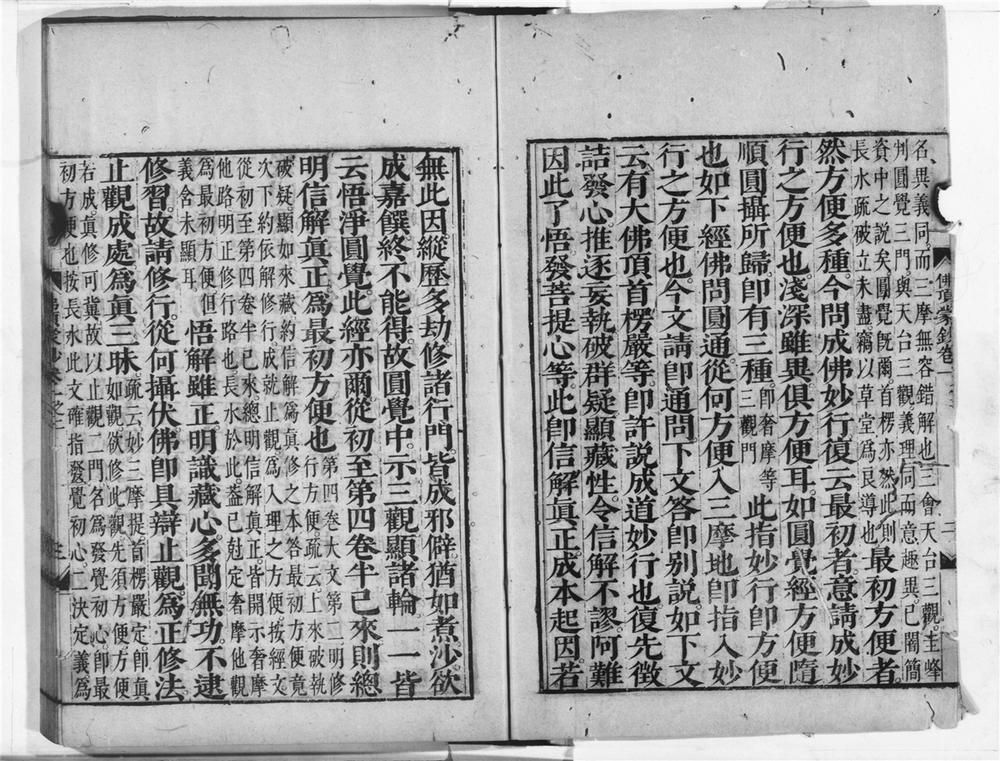 名異義同而三摩無容錯解也三會天台三觀圭峰
判圓覺三門與天台三觀義理同而意趣異已闇簡
資中之説矣圓覺既爾首楞亦然此則
長水疏破立未盡竊以草堂爲良導也
最初方便者
然方便多種今問成佛妙行復云最初者意請成妙
行之方便也淺深雖異俱方便耳如圓覺經方便隨
順圓攝所歸卽有三種卽奢摩等三觀門此指妙行卽方便
也如下經佛問圓通從何方便入三摩地卽指入妙
行之方便也今文請卽通問下文答卽別説如下文
云有大佛頂首楞嚴等卽許説成道妙行也復先徵
詰發心推逐妄執破群疑顯藏性令信解不謬阿難
因此了悟發菩提心等此卽信解眞正成本起因若
佛頂蒙鈔卷一
無此因縱歷多劫修諸行門皆成邪僻猶如煮沙欲
成嘉饌終不能得故圓覺中示三觀顯諸輪一一皆
云悟淨圓覺此經亦爾從初至第四卷半已來則總
明信解眞正爲最初方便也
第四卷大文第二明修
行方便疏云上來破執
破疑顯如來藏約信解爲眞修之本答最初方便竟
次下約依解修行成就止觀爲入理之方便按經文
從初至第四卷半已來總明信解眞正皆開示奢摩
他路明正修行路也長水於此葢已尅定奢摩他觀
爲最初方便但
義含未顯耳
悟解雖正明識藏心多聞無功不逮
修習故請修行從何攝伏佛卽具辯止觀爲正修法
止觀成處爲眞三昧
疏云妙三摩提首楞嚴定卽眞
如觀欲修此觀先須方便方便
若成眞修可冀故以止觀二門名爲發覺初心卽最
初方便也按長水此文確指發覺初心二決定義爲